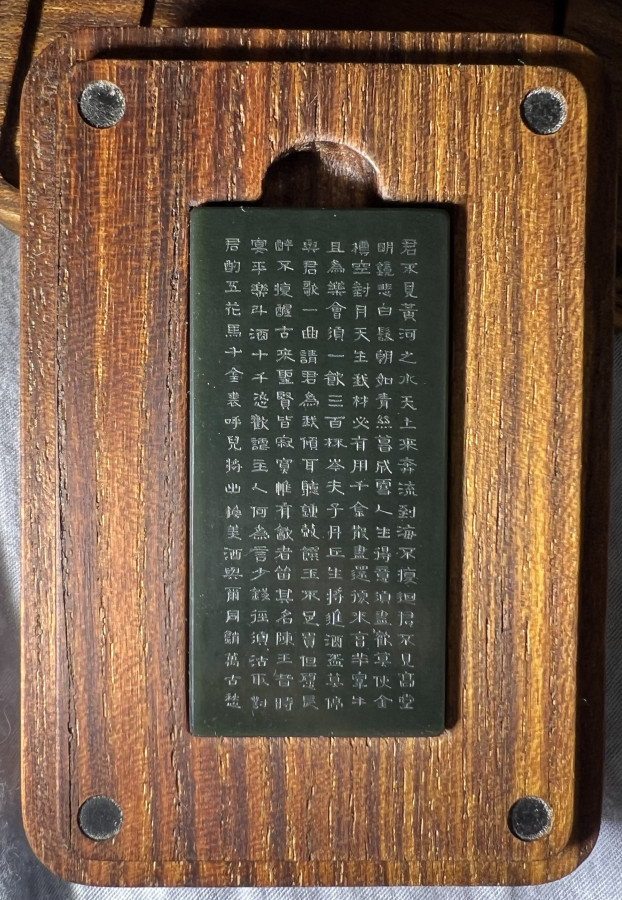 君不見黃河之水天上來奔流到海不復迴君不見高堂
明鏡悲白髮朝如青絲暮成雪人生得意須盡歡莫使金
樽空對月天生我材必有用千金散盡還復來烹羊宰牛
且為樂會須一飲三百杯岑夫子丹丘生將進酒盃莫停
與君歌一曲請君為我傾耳聽鍾鼓饌玉不足貴但願長
醉不復醒古來聖賢皆寂寞惟有飲者留其名陳王昔時
宴平樂斗酒十千恣歡謔主人何為言少錢徑須沽取對
君酌五花馬千金裘呼兒將出換美酒與爾同銷萬古愁